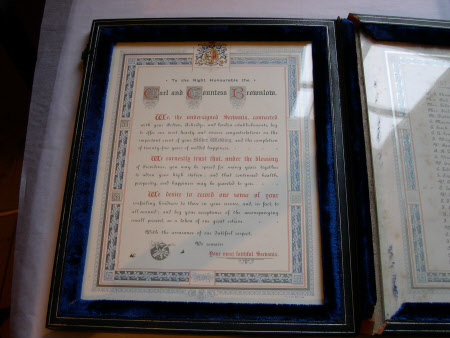 To the Right Honourable the
Earl and Countess Brownlow.
We the undersigned Servants, connected
with your Belton, Ashridge, and London establishments, beg
to offer our most hearty and sincere congratulations on the
important event of your Silver Wedding, and the completion
of twenty-five years of wedded happiness.
We earnestly trust that, under the blessing
of Providence, you may be spared for many years together
to adorn your high station; and that continued health,
prosperity, and happiness may be granted to you.
We desire to record our sense of your
unfailing kindness to those in your service, and, in fact, to
all around; and beg your acceptance of the accompanying
small present, as a token of our great esteem.
With the assurance of our faithful respect,
We remain
Your most faithful Servants.